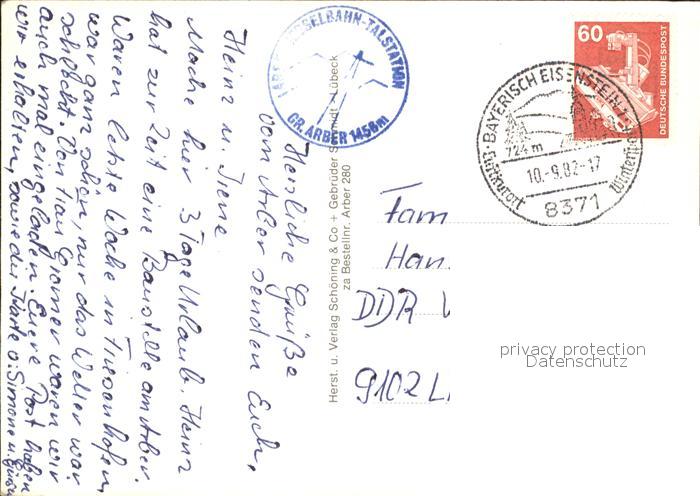 Herzliche Grüße
vom Arber senden Euch,
Heinz u. Irene.
Mache hier 3 Tage Urlaub. Heinz
hat zur Zeit eine Baustelle am Arber.
Waren letzte Woche in
war ganz schön, nur das Wetter war
schlecht. Von Frau waren wir
auch mal eingeladen. Euere Post haben
wir erhalten, sowie die Karte v. Simone u.
SESSELBAHN-TALSTATION
GR. ARBER 1456m
Herst. u. Verlag Schöning & Co + Gebrüder Schmidt, Lübeck
za Bestellnr. Arber 280
60
DEUTSCHE BUNDESPOST
BAYERISCH EISENSTEIN
724 m
10.-9.82-17
Luftkurort
8371
Fam
Han
DDR
9102 L
privacy protection
Datenschutz